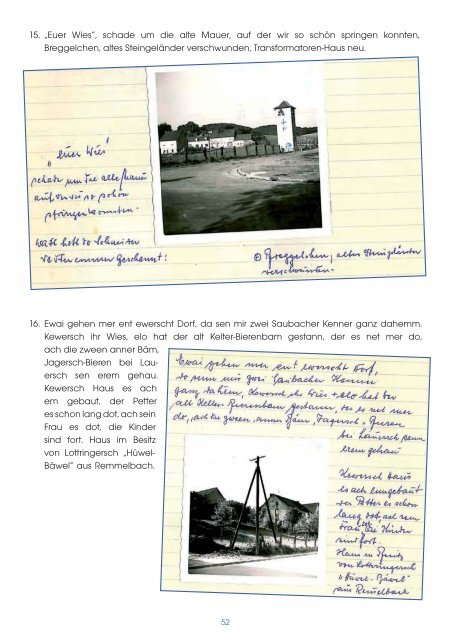 15. „Euer Wies“, schade um die alte Mauer, auf der wir so schön springen konnten,
Breggelchen, altes Steingeländer verschwunden, Transformatoren-Haus neu.
"Euer Wies"
schade um die alte Mauer
auf der wir so schön
springen konnten.
Breggelchen, altes Steingeländer
verschwunden.
16. Ewai gehen mer ent ewerscht Dorf, da sen mir zwei Saubacher Kenner ganz dahemm.
Kewersch ihr Wies, elo hat der alt Kelter-Bierenbam gestann, der es net mer do,
ach die zween anner Bäm,
Jagersch-Bieren bei Lau-
ersch sen erem gehau.
Kewersch Haus es ach
em gebaut, der Petter
es schon lang dot, ach sein
Frau es dot, die Kinder
sind fort. Haus im Besitz
von Lottringersch „Hüwel-
Bäwel“ aus Remmelbach.
Ewai gehen mer ent ewerscht Dorf,
do senn mir zwei Saubacher Kenner
ganz dahemm, Kewersch ihr Wies elo hat der
alt Kelter Bierenbam gestann, der es net mer
do, ach die zween anner Bäm, Jagersch Bieren
bei Lauersch senn
erem gehau
Kewersch Haus
es ach emgebaut
der Petter es schon
lang dot, ach sein
Frau, die Kinder
sind fort.
Haus im Besitz
von Lottringersch
"Hüwel-Bäwel"
aus Remelbach
52